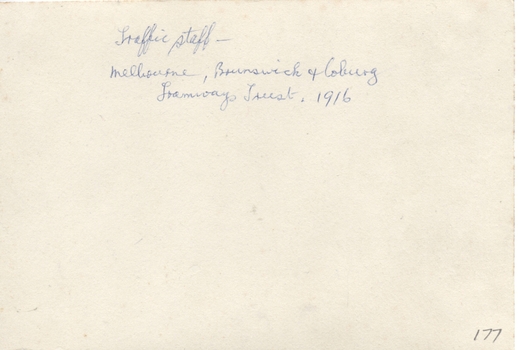 Traffic staff –
Melbourne, Brunswick & Coburg
Tramways Trust. 1916
177